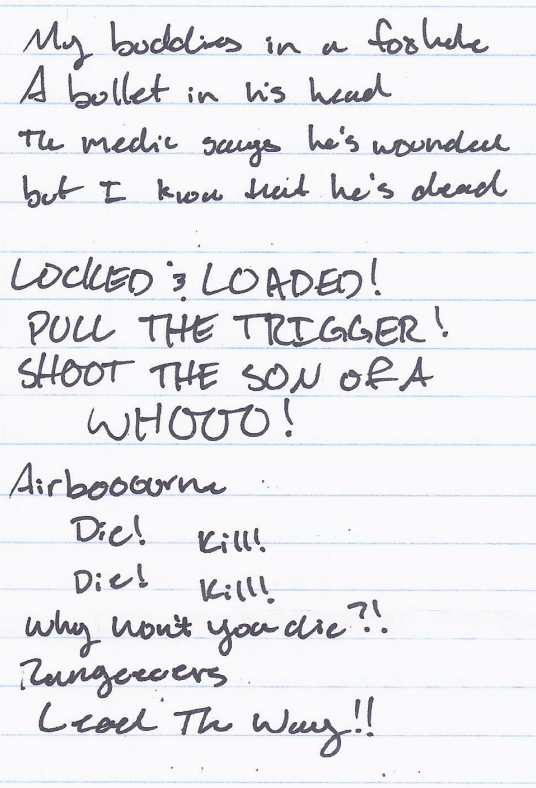 My buddies in a foxhole
A bullet in his head
The medic says he's wounded
but I know that he's dead
LOCKED & LOADED!
PULL THE TRIGGER!
SHOOT THE SON OF A
WHOOO!
Airboooourne
Die! Kill!
Die! Kill!
Why won't you die?!
Rangeeeers
Lead The Way!!